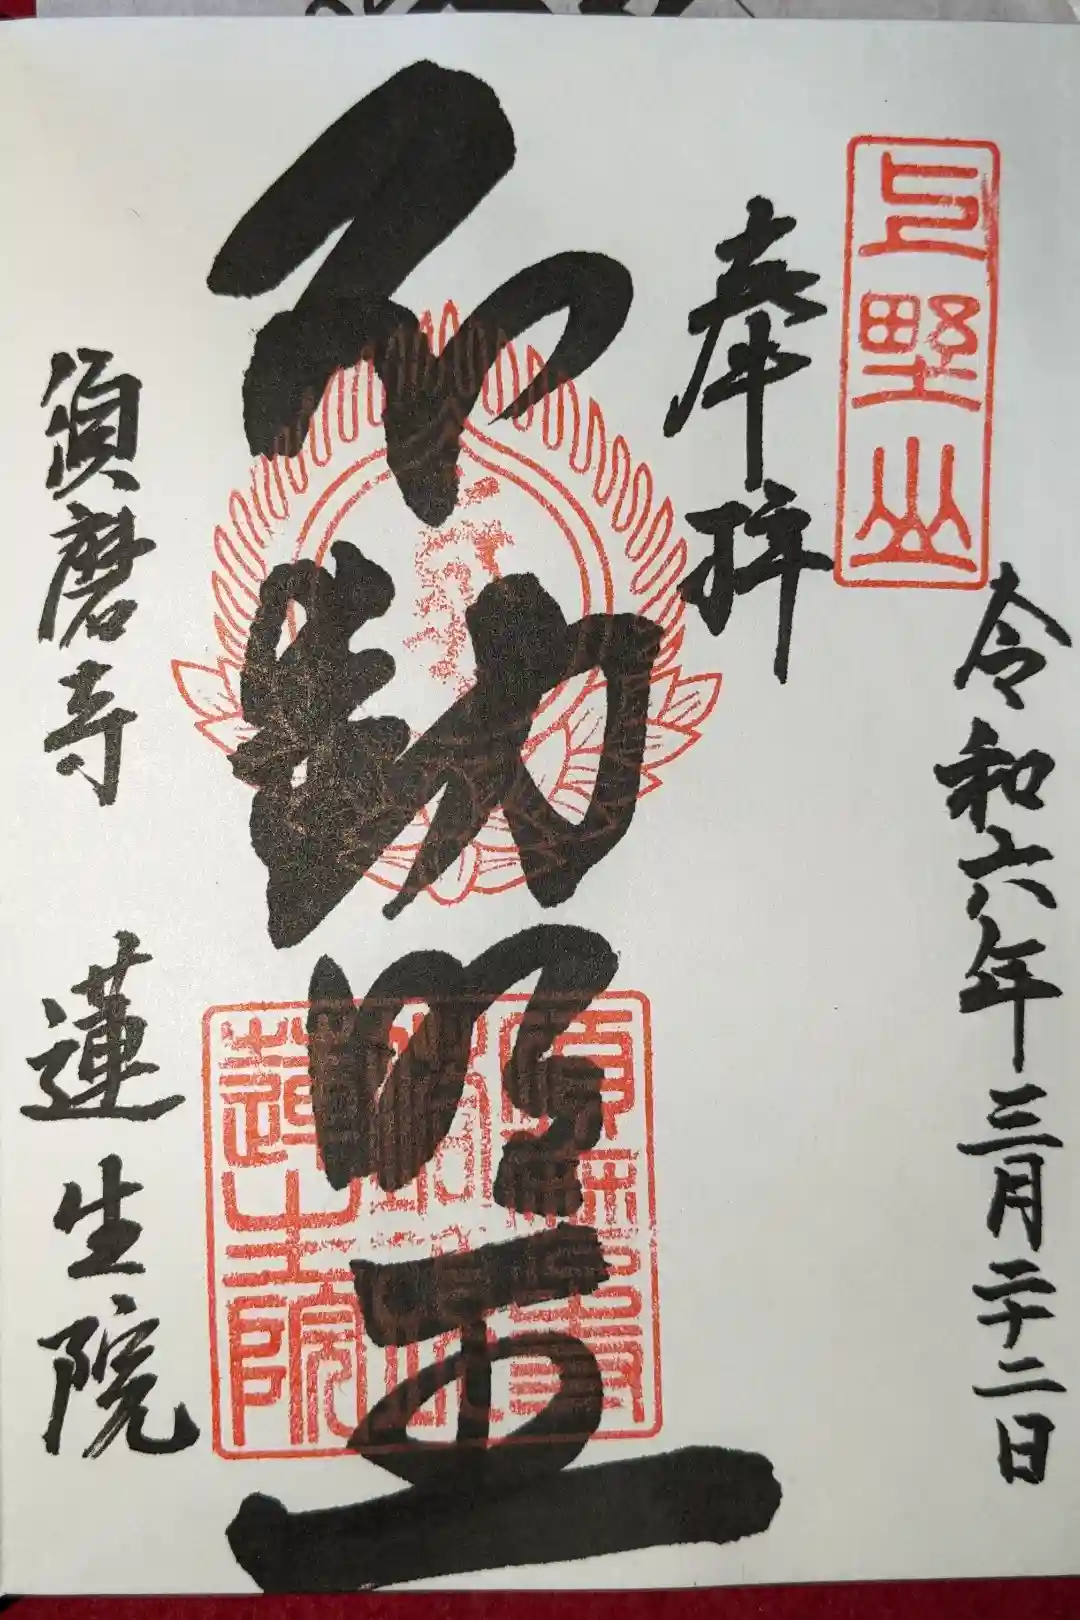 令和六年三月二十二日
上野山
奉拝
不動明王
蓮生院
須磨寺 蓮生院